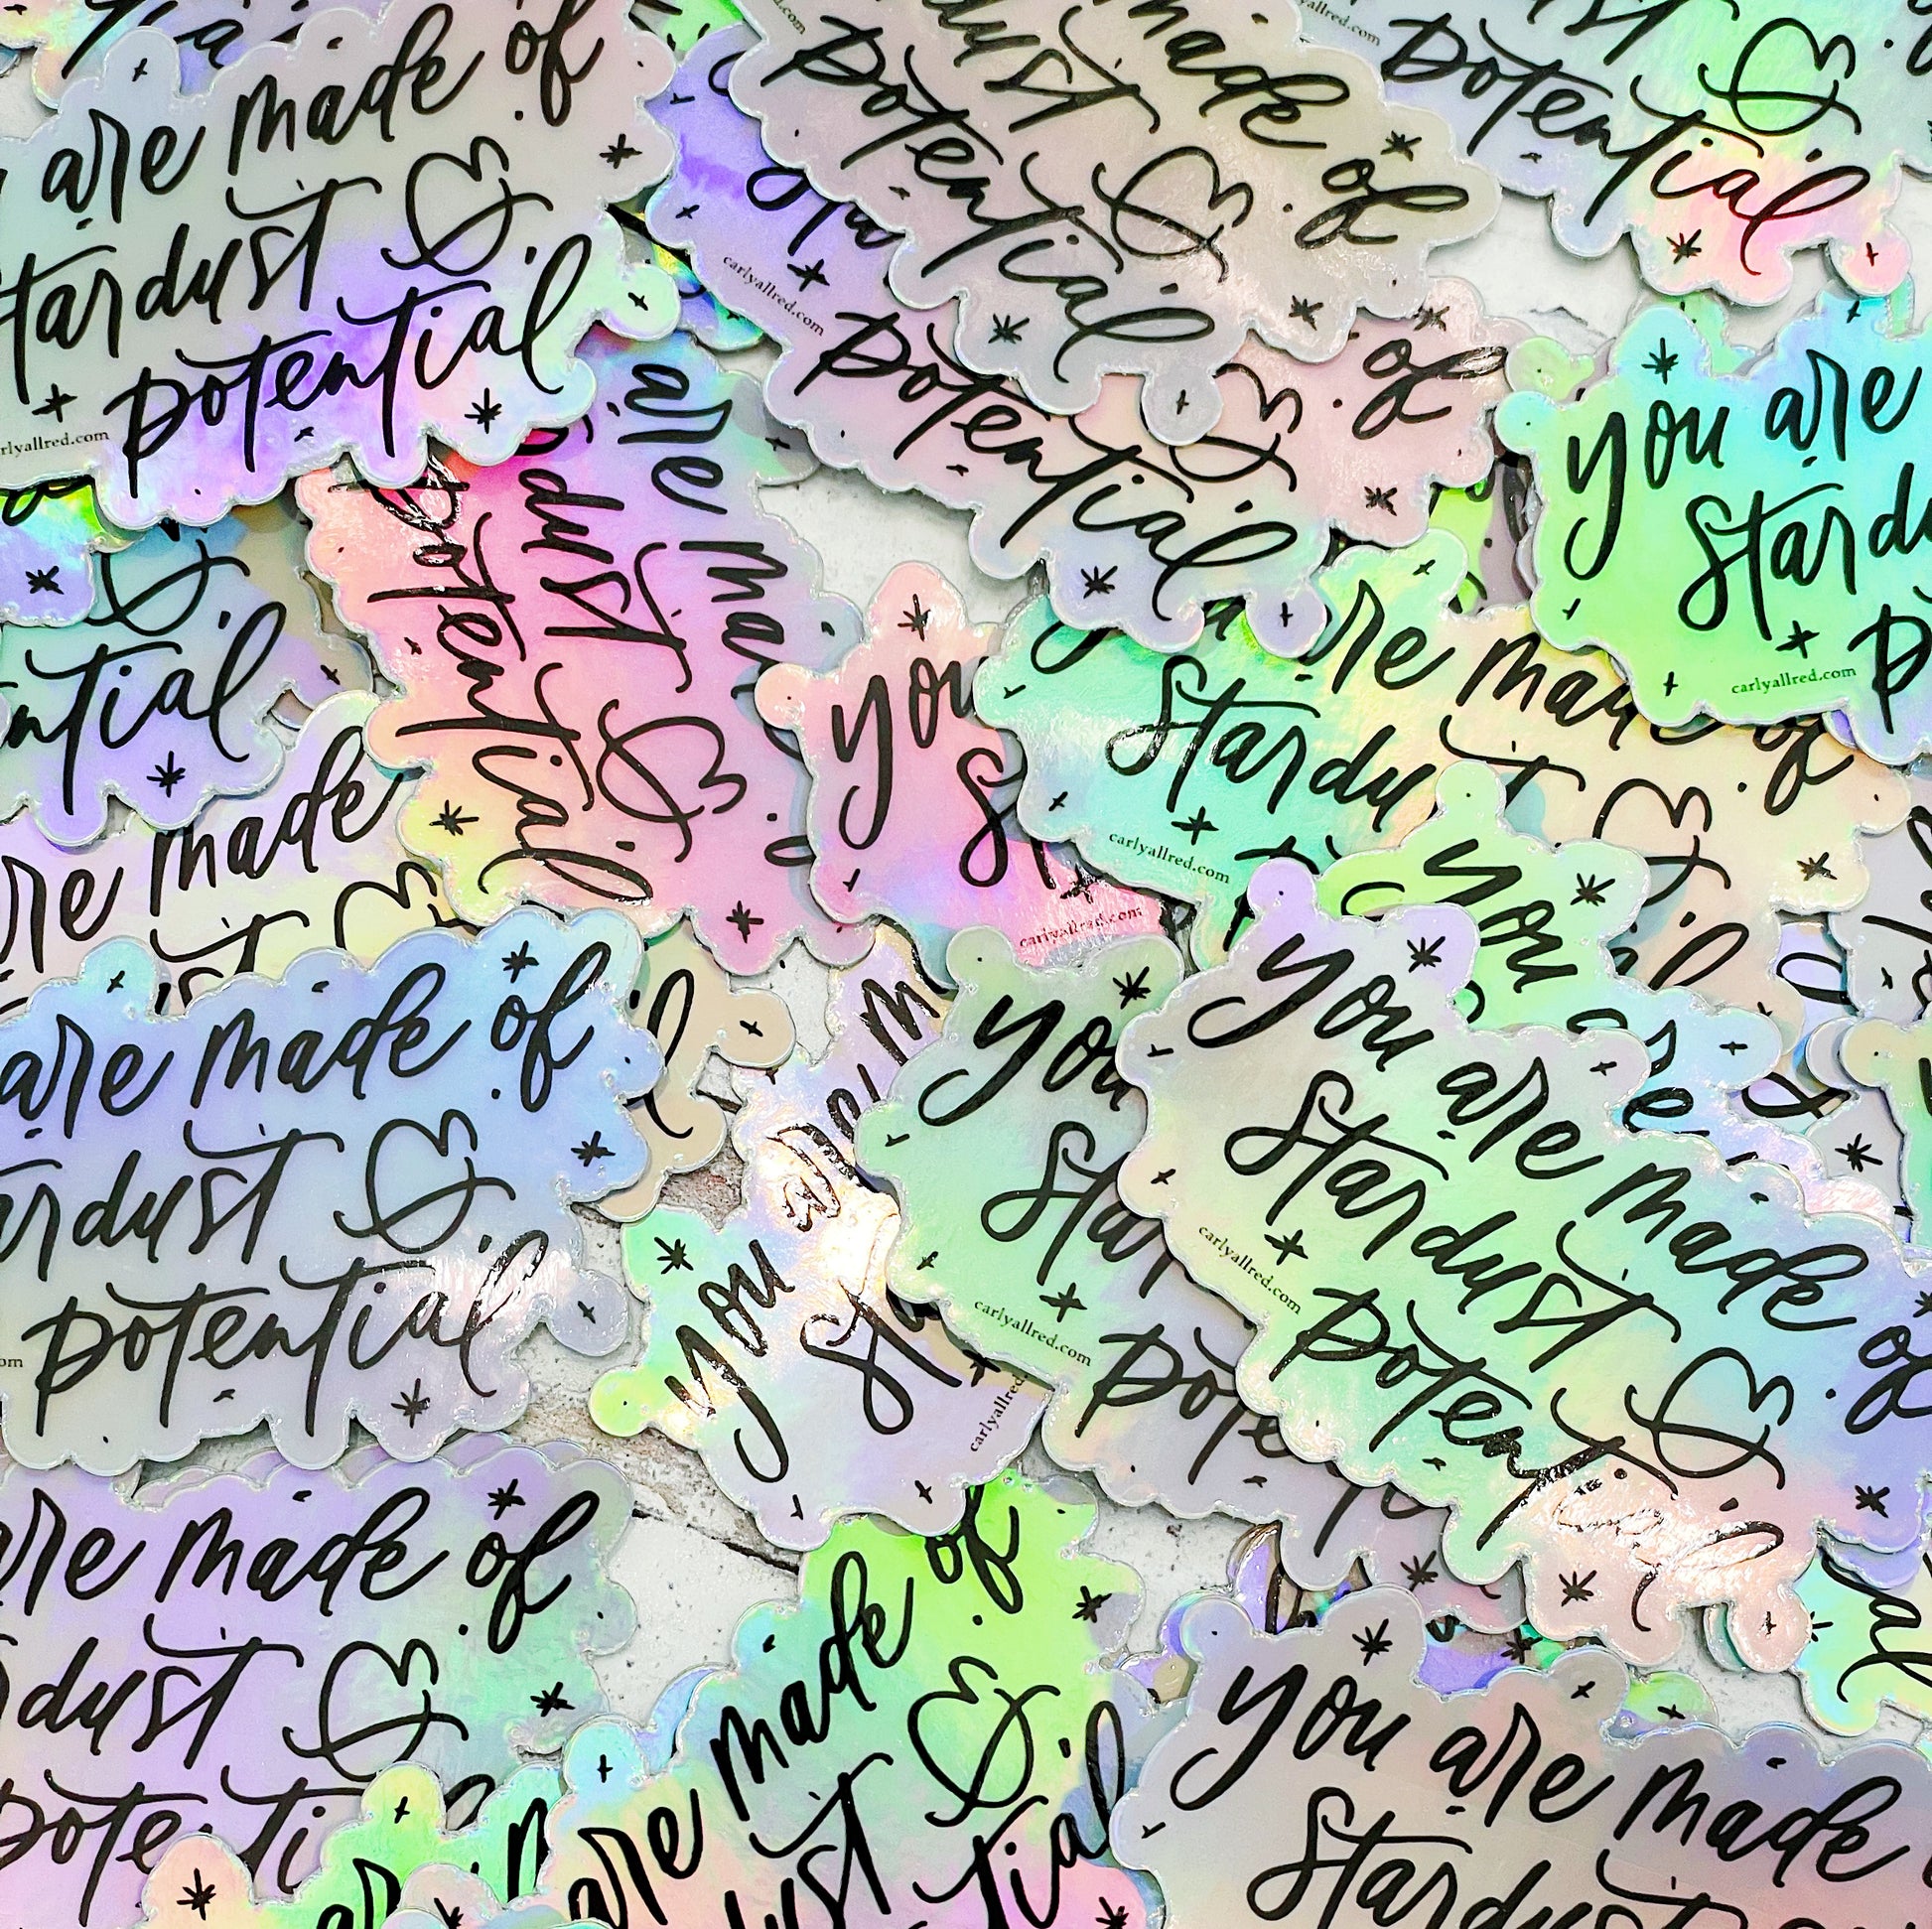 are made of
tardust &
potential
rlyallred.com
dust
made of
&
potential
allred.com
&
potential
sta
carlyallred.com
of
&
potential
you are
stard
carlyallred.com
p
are ma
dust &
potential
&
ntial
you
st
carlyallred.com
re made of
stardu
&
carlyallred.com
re made
st &
are made of
ardust &
potential
om
you
are
you
sta
carlyallred.com
pote
you are made of
stardust &
carlyallred.com
potential
you
st
carlyallred.
are made of
dust &
potenti
are made of
dust &
tial
you are made
stardust